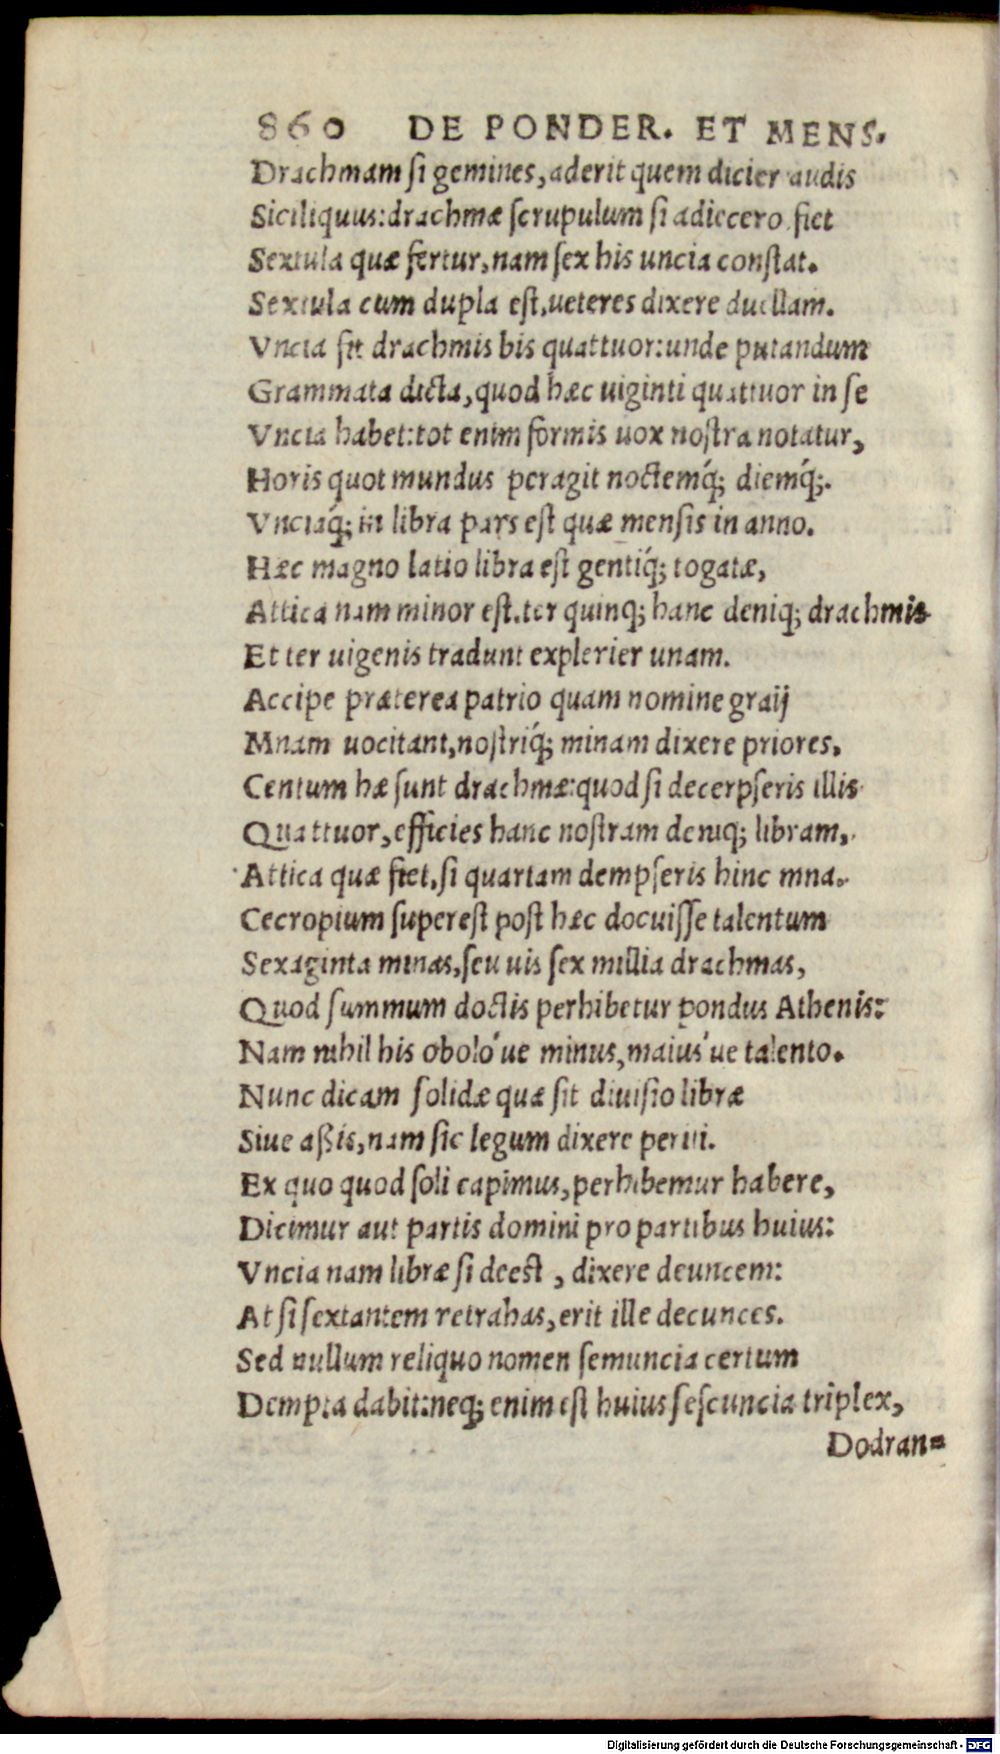 860 DE PONDER. ET MENS.
Drachmam ſi gemines, aderit quem dicier audis
Siciliquus: drachmæ ſcrupulum ſi adiecero, fiet
Sextula quæ fertur, nam ſex his uncia conſtat.
Sextula cum dupla eſt, ueteres dixere duellam.
Vncia fit drachmis bis quattuor: unde putandum
Grammata dicta, quod hæc uiginti quattuor in ſe
Vncia habet: tot enim formis uox noſtra notatur,
Horis quot mundus peragit noctemq́; diemq́;.
Vnciaq́; in libra pars eſt quæ menſis in anno.
Hæc magno latio libra eſt gentiq́; togatæ,
Attica nam minor eſt. ter quinq; hanc deniq; drachmis
Et ter uigenis tradunt explerier unam.
Accipe præterea patrio quam nomine graij
Mnam uocitant, noſtriq́; minam dixere priores.
Centum hæ ſunt drachmæ: quod ſi decerpſeris illis
Quattuor, efficies hanc noſtram deniq; libram,
Attica quæ fiet, ſi quartam dempſeris hinc mna.
Cecropium ſupereſt poſt hæc docuiſſe talentum
Sexaginta minas, ſeu uis ſex millia drachmas,
Quod ſummum doctis perhibetur pondus Athenis:
Nam nihil his obolo'ue minus, maius'ue talento.
Nunc dicam ſolidæ quæ ſit diuiſio libræ
Siue aßis, nam ſic legum dixere periti.
Ex quo quod ſoli capimus, perhibemur habere,
Dicimur aut partis domini pro partibus huius:
Vncia nam libræ ſi deeſt, dixere deuncem:
At ſi ſextantem retrahas, erit ille decunces.
Sed nullum reliquo nomen ſemuncia certum
Dempta dabit: neq; enim eſt huius ſeſcuncia triplex,
Dodran=
Digitalisierung gefördert durch die Deutsche Forschungsgemeinschaft - DFG